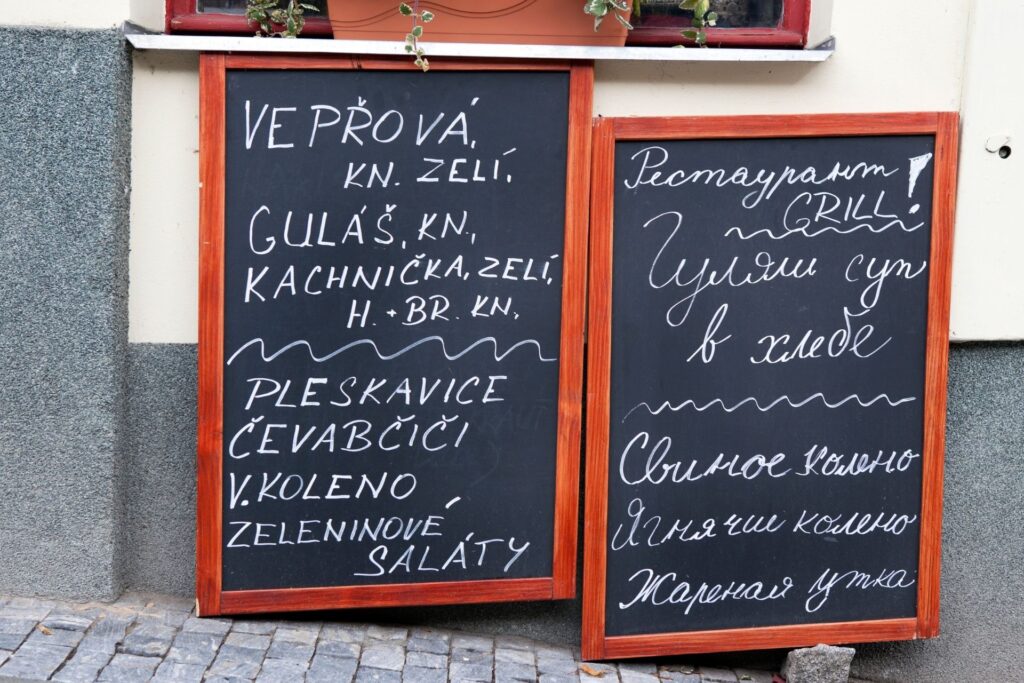 VEPŘOVÁ,
KN. ZELÍ,
GULÁŠ, KN.,
KACHNIČKA, ZELÍ,
H. + BR. KN.
PLESKAVICE
ČEVABČIČI
V. KOLENO
ZELENINOVÉ
SALÁTY
Рестаурант!
GRILL
Гуляш суп
в хлебе
Свиное колено
Ягнячие колено
Жареная утка